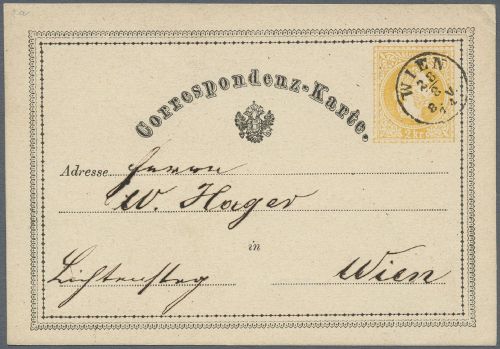 Correspondenz-Karte.
WIEN
28
8
8 V.
74
2 kr
Adresse Herrn
W. Hager
in
Lichtensteg Wien